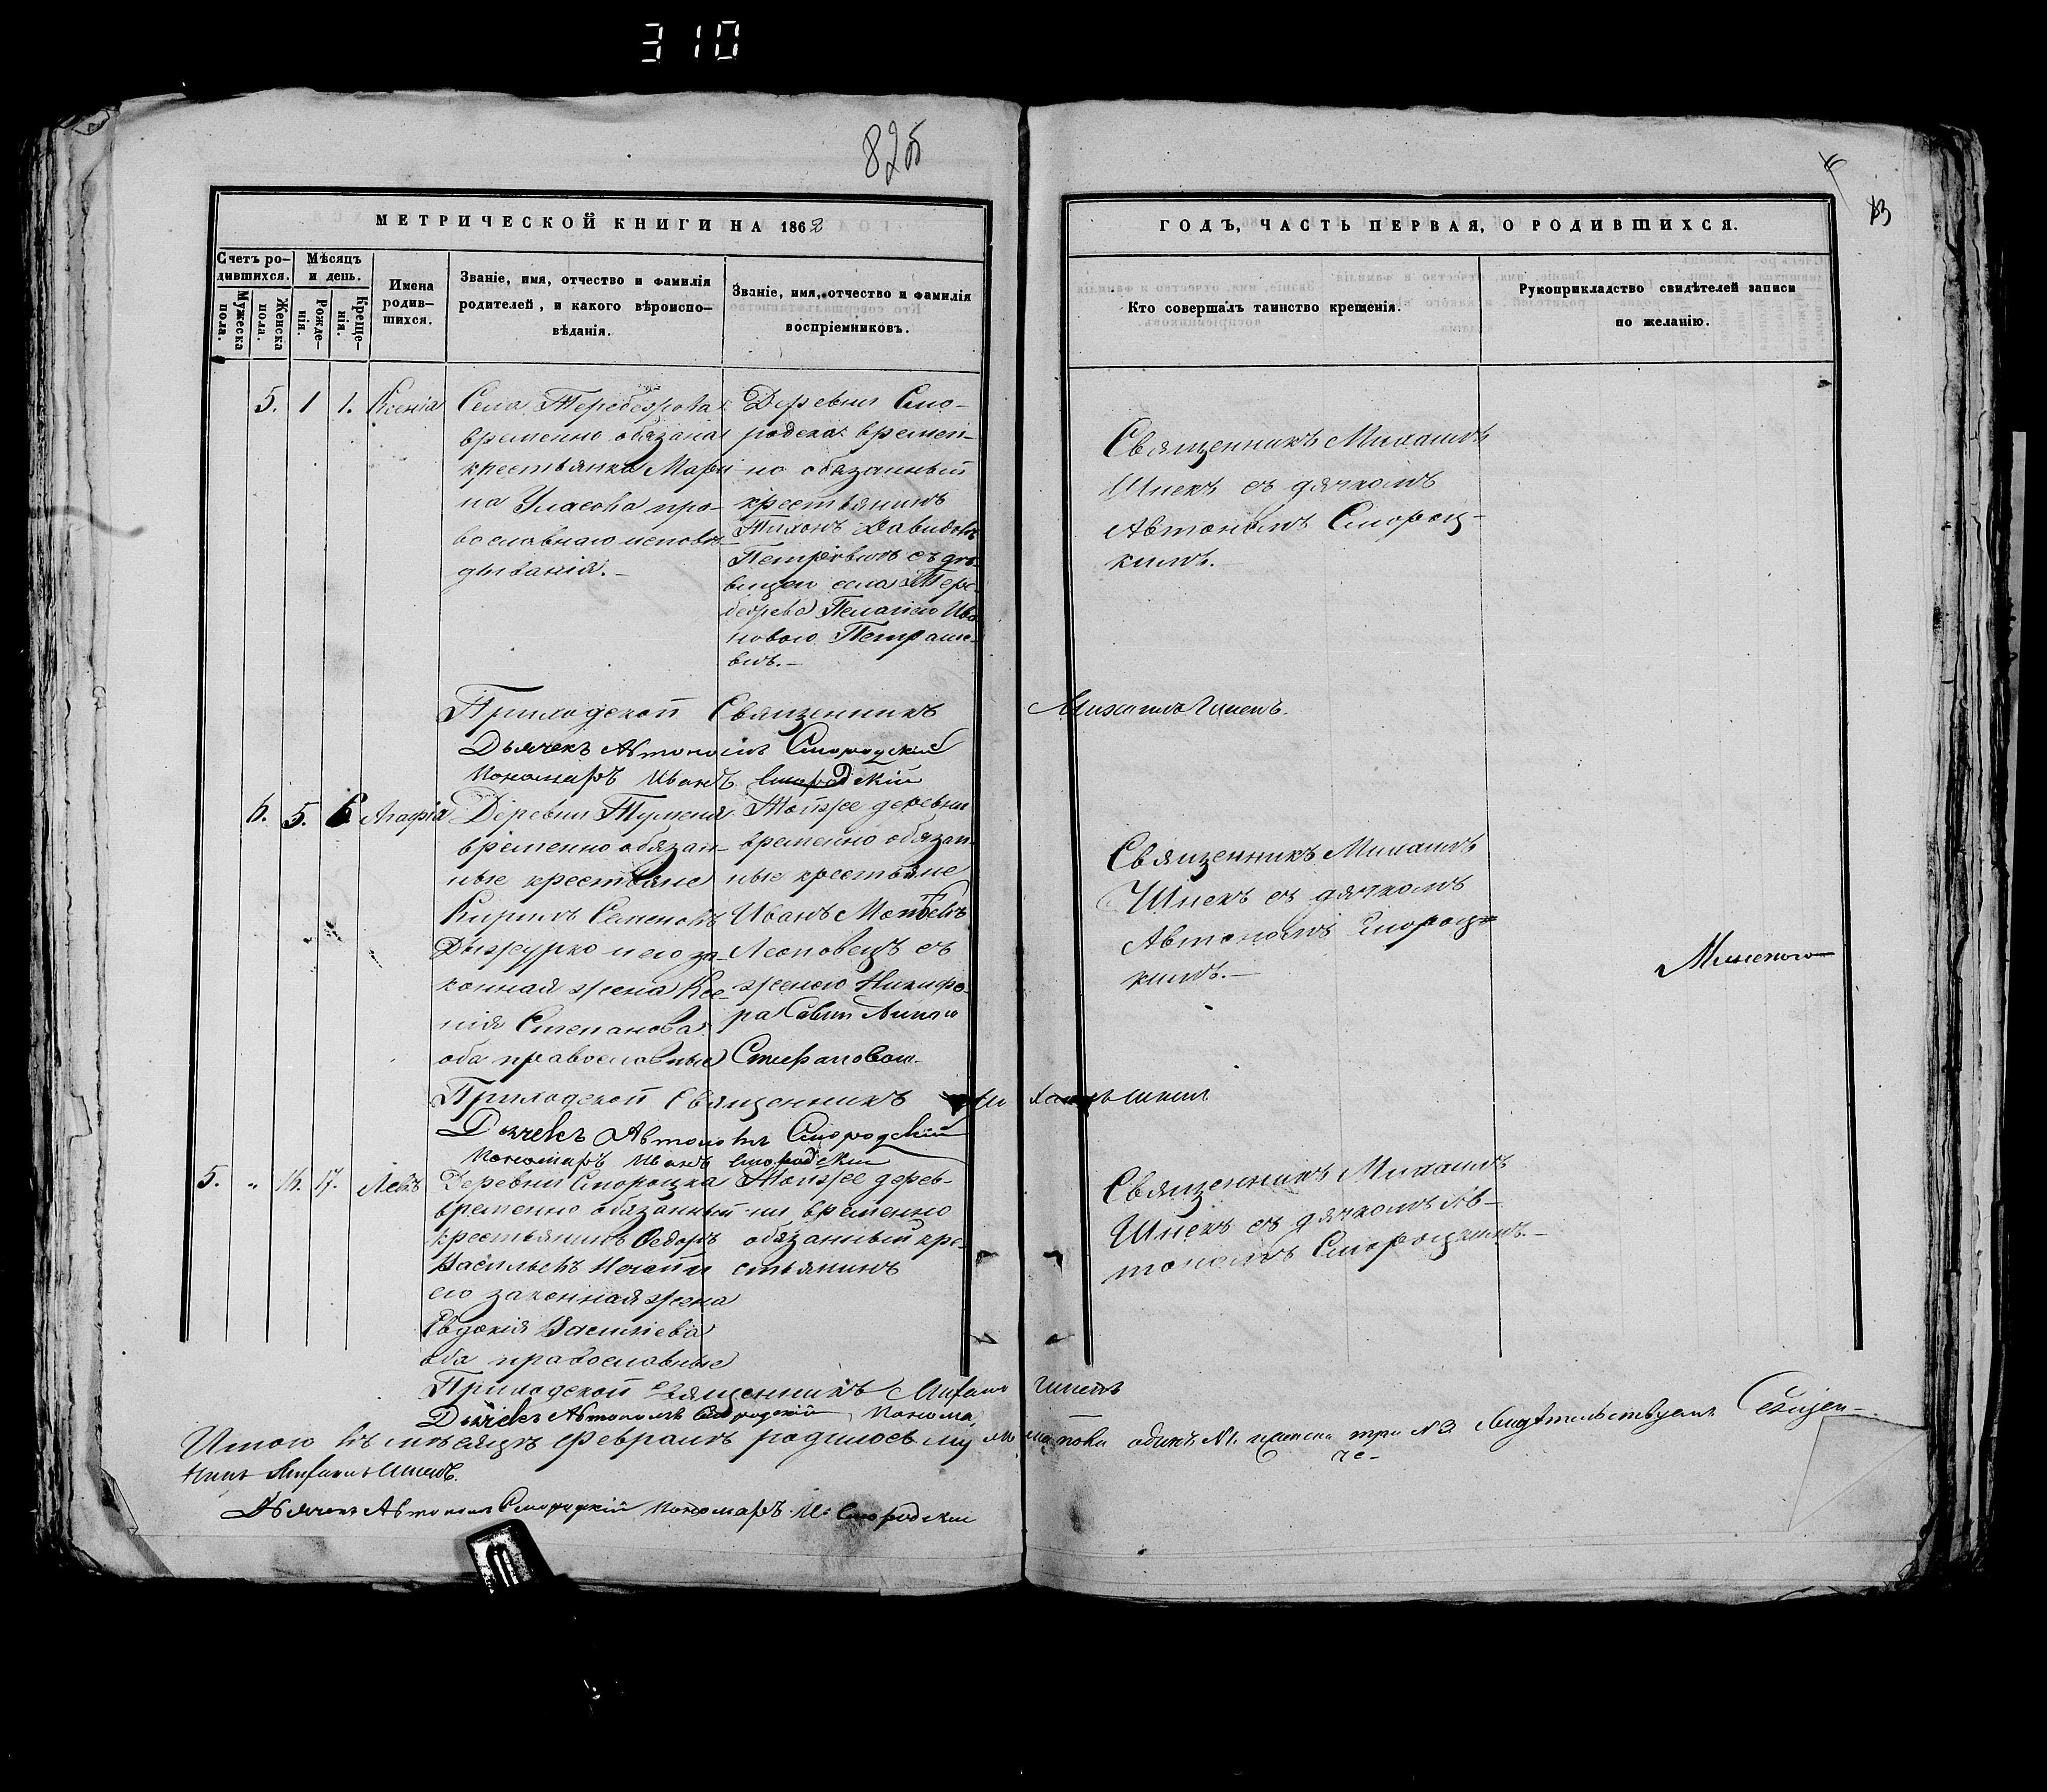 310
825
13
МЕТРИЧЕСКОЙ КНИГИ НА 1862
ГОДЪ, ЧАСТЬ ПЕРВАЯ, О РОДИВШИХСЯ.
Счетъ ро-
дившихся.
Мужеска
пола.
Женска
пола.
Мѣсяцъ
и день.
Рожде-
нія.
Креще-
нія.
Имена
родив-
шихся.
Званіе, имя, отчество и фамилія
родителей, и какого вѣроиспо-
вѣданія.
Званіе, имя, отчество и фамилія
воспріемниковъ.
Кто совершалъ таинство крещенія.
Рукоприкладство свидѣтелей записи
по желанію.
5. 1 1. Ксенія
Села Теребежова
временно обязана
крестьянка Мари
на Уласова пра-
вославнаго испове-
дыванія.
Деревни Смо-
родска времен-
но обязанный
крестьянинъ
Тихонъ Давидовъ
съ дѣ-
вицею села Тере-
бежова Пелагіею Ива
новою
Священникъ Михаилъ
Шпекъ съ дячкомъ
Автономъ Смород-
кимъ.
Приходской Священникъ Михаилъ Шпекъ.
Дьячекъ Автономъ Смородскій
Пономаръ Иванъ Смородскій
6. 5. 6 Агафія
Деревни Туменя
временно обязан-
ные крестьяне
Кирилъ Семеновъ
и его за-
конная жена Ксе-
нія Степанова
оба православные
Тойже деревни
временно обязан
ные крестьяне
Иванъ
съ
женою Никифо-
ра
Священникъ Михаилъ
Шпекъ съ дячкомъ
Автономъ Смород
кимъ.
Приходской Священникъ Михаилъ Шпекъ
Дьячекъ Автономъ Смородскій
Пономаръ Иванъ Смородскій
5. „ 16. 17. Левъ
Деревни Смородска
временно обязанный
крестьянинъ Ѳедоръ
Васильевъ
его законная жена
Евдокія Васильева
оба православные
Тойже дерев-
ни временно
обязанный кре-
стьянинъ
Священникъ Михаилъ
Шпекъ съ дячкомъ Ав-
тономъ Смородкимъ.
Приходской Священникъ Михаилъ Шпекъ
Дьячекъ Автономъ Смородскій Понома
Итого въ мѣсяцѣ Февралѣ родилось пола одинъ №1. три №3. Свидѣтельствуемъ Священ-
никъ Михаилъ Шпекъ.
Дьячекъ Автономъ Смородскій Пономаръ И. Смородскій